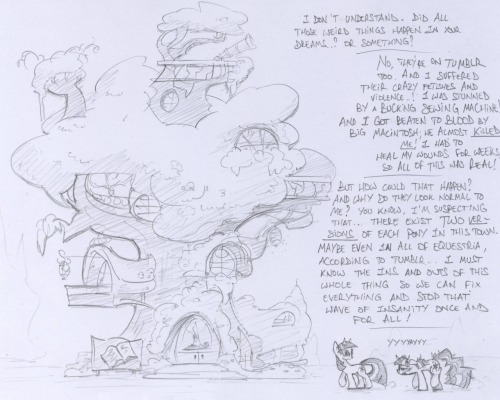 I DON'T UNDERSTAND. DID ALL
THOSE WEIRD THINGS HAPPEN IN YOUR
DREAMS..? OR SOMETHING?
NO, THEY'RE ON TUMBLR
TOO. AND I SUFFERED
THEIR CRAZY FETISHES AND
VIOLENCE..! I WAS STUNNED
BY A BUCKING SEWING MACHINE
AND I GOT BEATEN TO BLOOD BY
BIG MACINTOSH; HE ALMOST KILLED
ME! I HAD TO
HEAL MY WOUNDS FOR WEEKS
SO ALL OF THIS WAS REAL!
BUT HOW COULD THAT HAPPEN?
AND WHY DO THEY LOOK NORMAL TO
ME? YOU KNOW, I'M SUSPECTING
THAT... THERE EXIST TWO VER-
SIONS OF EACH PONY IN THIS TOWN.
MAYBE EVEN IN ALL OF EQUESTRIA,
ACCORDING TO TUMBLR... I MUST
KNOW THE INS AND OUTS OF THIS
WHOLE THING SO WE CAN FIX
EVERYTHING AND STOP THAT
WAVE OF INSANITY ONCE AND
FOR ALL!